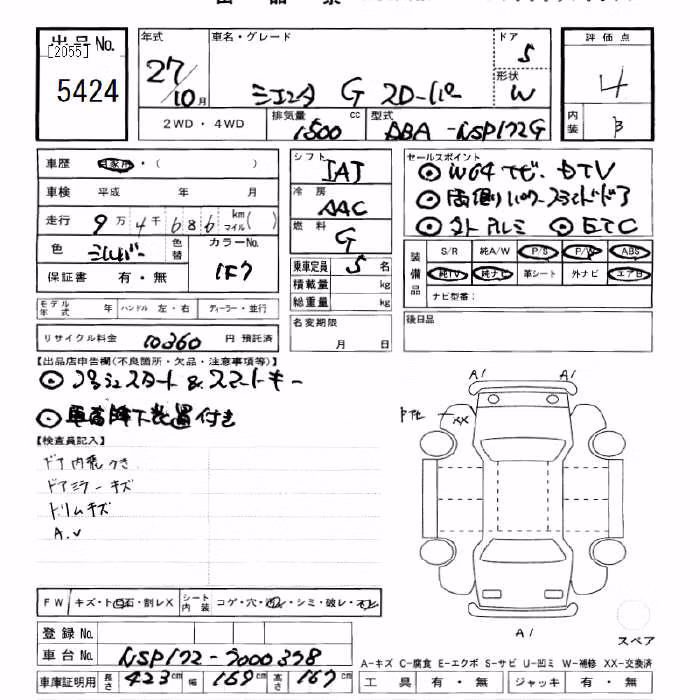 出品No.
[2055]
5424
年式
27/10月
車名・グレード
シエンタ G スローパー
ドア
5
形状
W
評価点
4
内装
B
2WD・4WD
排気量 1500 cc
型式 DBA-NSP172G
車歴 自家用・( )
車検 平成 年 月
走行 9万4千686 km マイル( )
色 シルバー
色替
カラーNo.
1F7
保証書 有・無
モデル年式 年 ハンドル 左・右 ディーラー・並行
リサイクル料金 10360 円 預託済
シフト
IAT
冷房
AAC
燃料
G
乗車定員 5 名
積載量 kg
総重量 kg
名変期限
月 日
セールスポイント
◎W64ナビ DTV
◎両側パワースライドドア
◎外アルミ ◎ETC
装備品
S/R 純A/W P/S P/W ABS
純TV 純ナビ 革シート 外ナビ エアB
ナビ型番:
後日品
【出品店申告欄(不良箇所・欠品・注意事項等)】
◎プッシュスタート&スマートキー
◎車高降下装置付き
【検査員記入】
ドア内張りキズ
ドアミラーキズ
トリムキズ
A.V
A1 A1
XX
A1
スペア
FW キズ・ト石・割レX
シート内装 コゲ・穴・ ・シミ・破レ・
登録No.
車台No. NSP172-7000378
車庫証明用 長さ 423cm 幅 169cm 高さ 167cm
A-キズ C-腐食 E-エクボ S-サビ U-凹ミ W-補修 XX-交換済
工具 有・無 ジャッキ 有・無